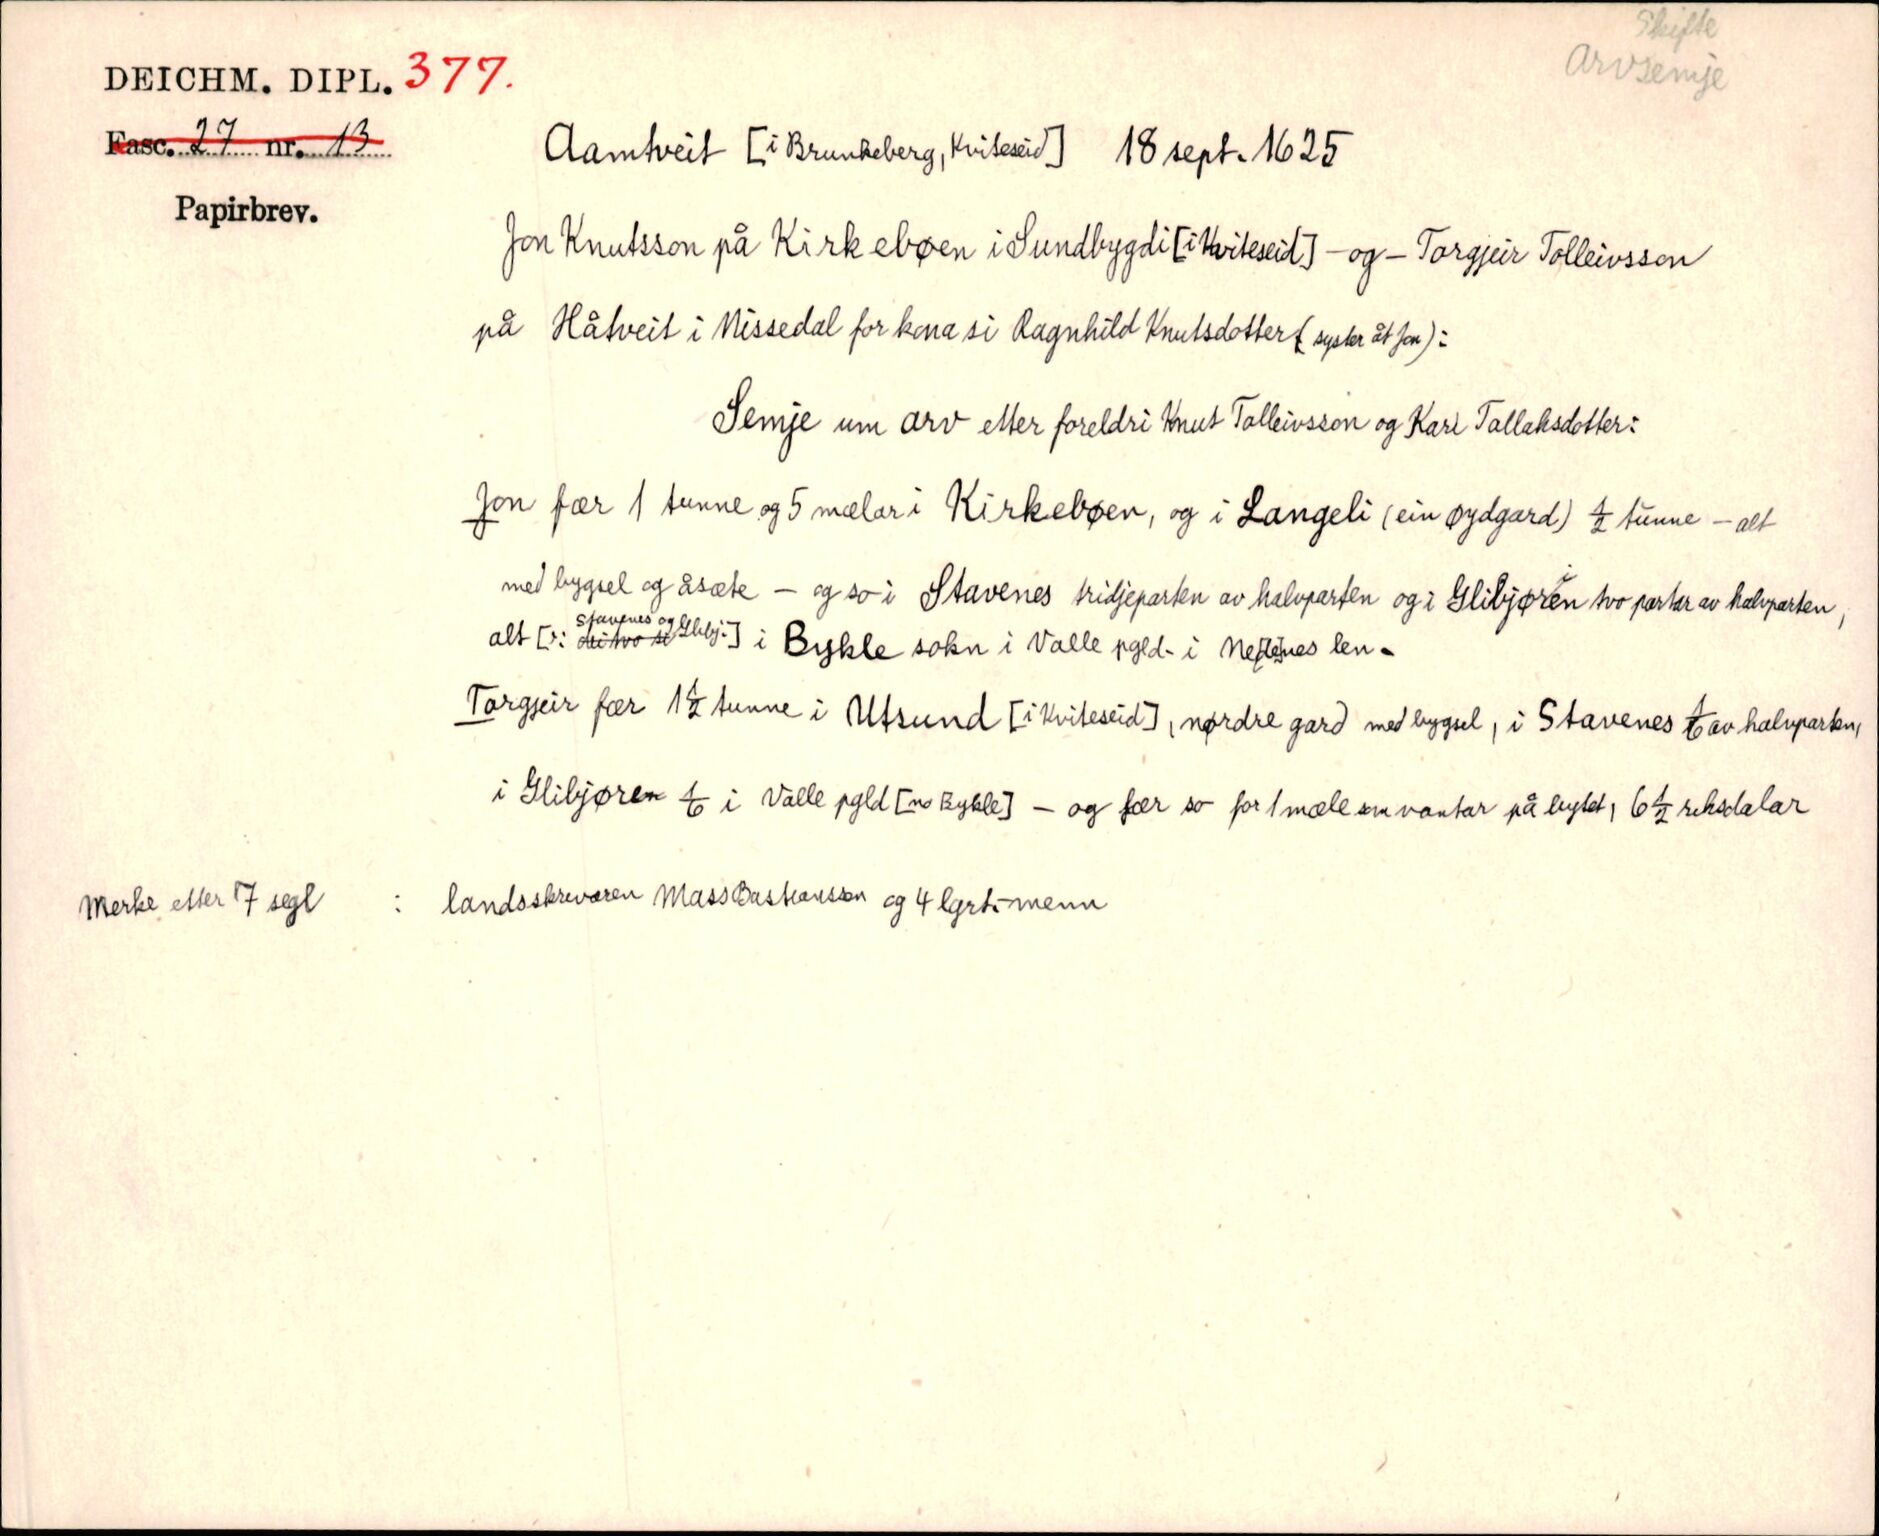 Skifte
Arvsemje
DEICHM. DIPL. 377.
Fasc. 27 nr. 13
Papirbrev.
Aamtveit [i Brunkeberg, Kviteseid] 18 sept. 1625
Jon Knutsson på Kirkebøen i Sundbygdi [i Kviteseid] - og - Torgjeir Tolleivsson
på Håtveit i Nissedal for kona si Ragnhild Knutsdotter (syster åt Jon):
Semje um arv etter foreldri Knut Tolleivsson og Kari Tallaksdotter:
Jon fær 1 tunne og 5 mælar i Kirkebøen, og i Langeli (ein øydgard) 1/2 tunne - alt
med bygsel og åsæte - og so i Stavenes tridjeparten av halvparten og i Glibjøren tvo partar av halvparten,
alt [ɔ: Stavenes og Glibj.] i Bykle sokn i Valle pgld. i Ne[de]nes len.
Torgjeir fær 1 1/2 tunne i Utsund [i Kviteseid], nørdre gard med bygsel, i Stavenes 1/6 av halvparten,
i Glibjøren 1/6 i Valle pgld [no Bykle] - og fær so for 1 mæle som vantar på bytet, 6 1/2 riksdalar
Merke etter 7 segl : landsskrivaren Mass Bastiansson og 4 lgrt.-menn